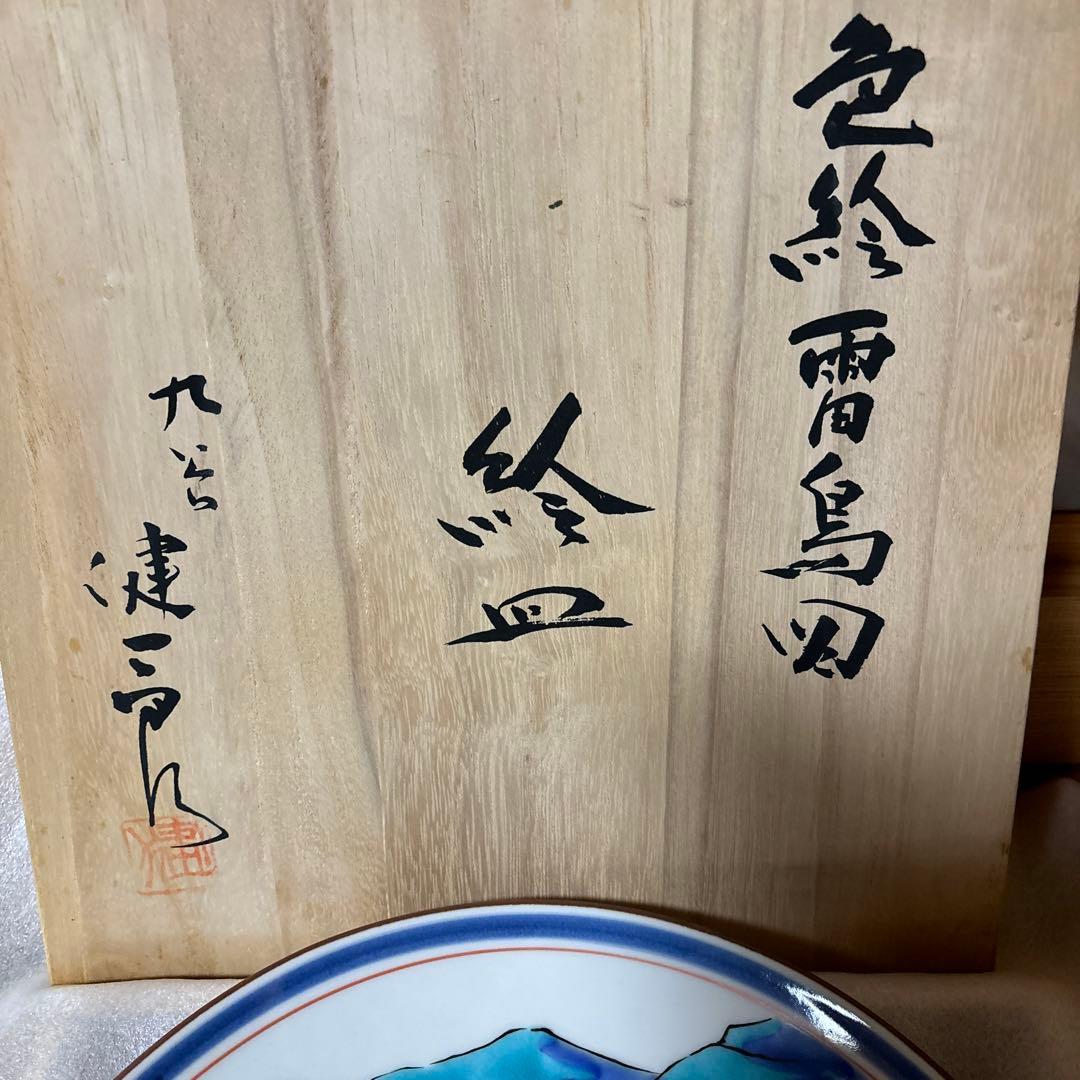 色絵雷鳥図
絵皿
九谷 健一郎
健